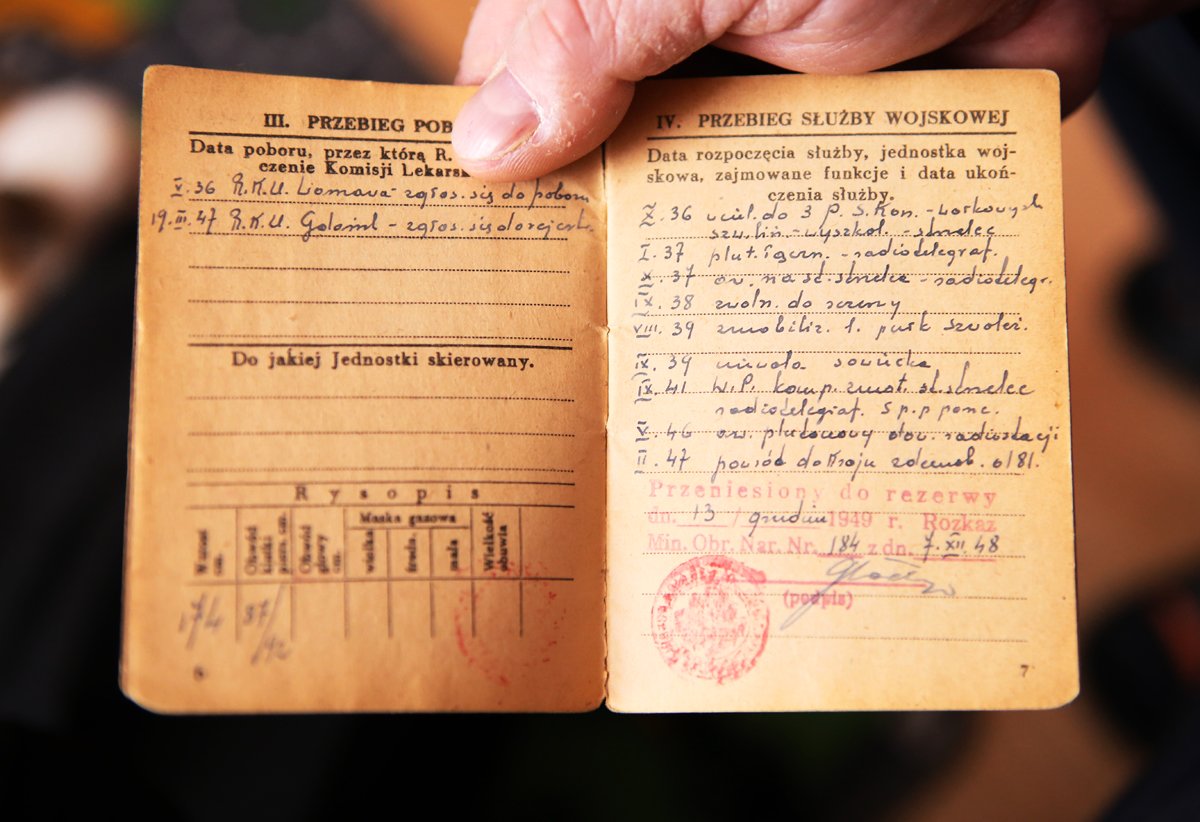 III. PRZEBIEG POB
Data poboru, przez którą R.
czenie Komisji Lekarsk
V.36 R.K.U. zgłos. się do poboru
19.III.47 R.K.U. - zgłos. się do rejestr.
Do jakiej Jednostki skierowany.
Rysopis
Wzrost cm.
Obwód klatki piers. cm.
Obwód głowy cm.
Maska gazowa
wielka
średn.
mała
Wielkość obuwia
174
87/92
6
IV. PRZEBIEG SŁUŻBY WOJSKOWEJ
Data rozpoczęcia służby, jednostka woj-
skowa, zajmowane funkcje i data ukoń-
czenia służby.
X.36 wciel. do 3 P. S. Kon. -
szw. lin. - wyszkol. - strzelec
I.37 plut. łączn. - radiotelegraf.
X.37 aw. na st. strzelca - radiotelegr.
IX.38 zwoln. do rezerwy
VIII.39 zmobiliz. 1. pułk szwoleż.
IX.39 niewola sowiecka
IX.41 W.P. komp. st. strzelec
radiotelegraf. 5 p. p panc.
V.46 aw. plutonowy dow. radiostacji
II.47 powrót do Kraju zdemob.
Przeniesiony do rezerwy
dn. 13 / grudnia 1949 r. Rozkaz
Min. Obr. Nar. Nr. 184 z dn. 7.XII.48
(podpis)
7